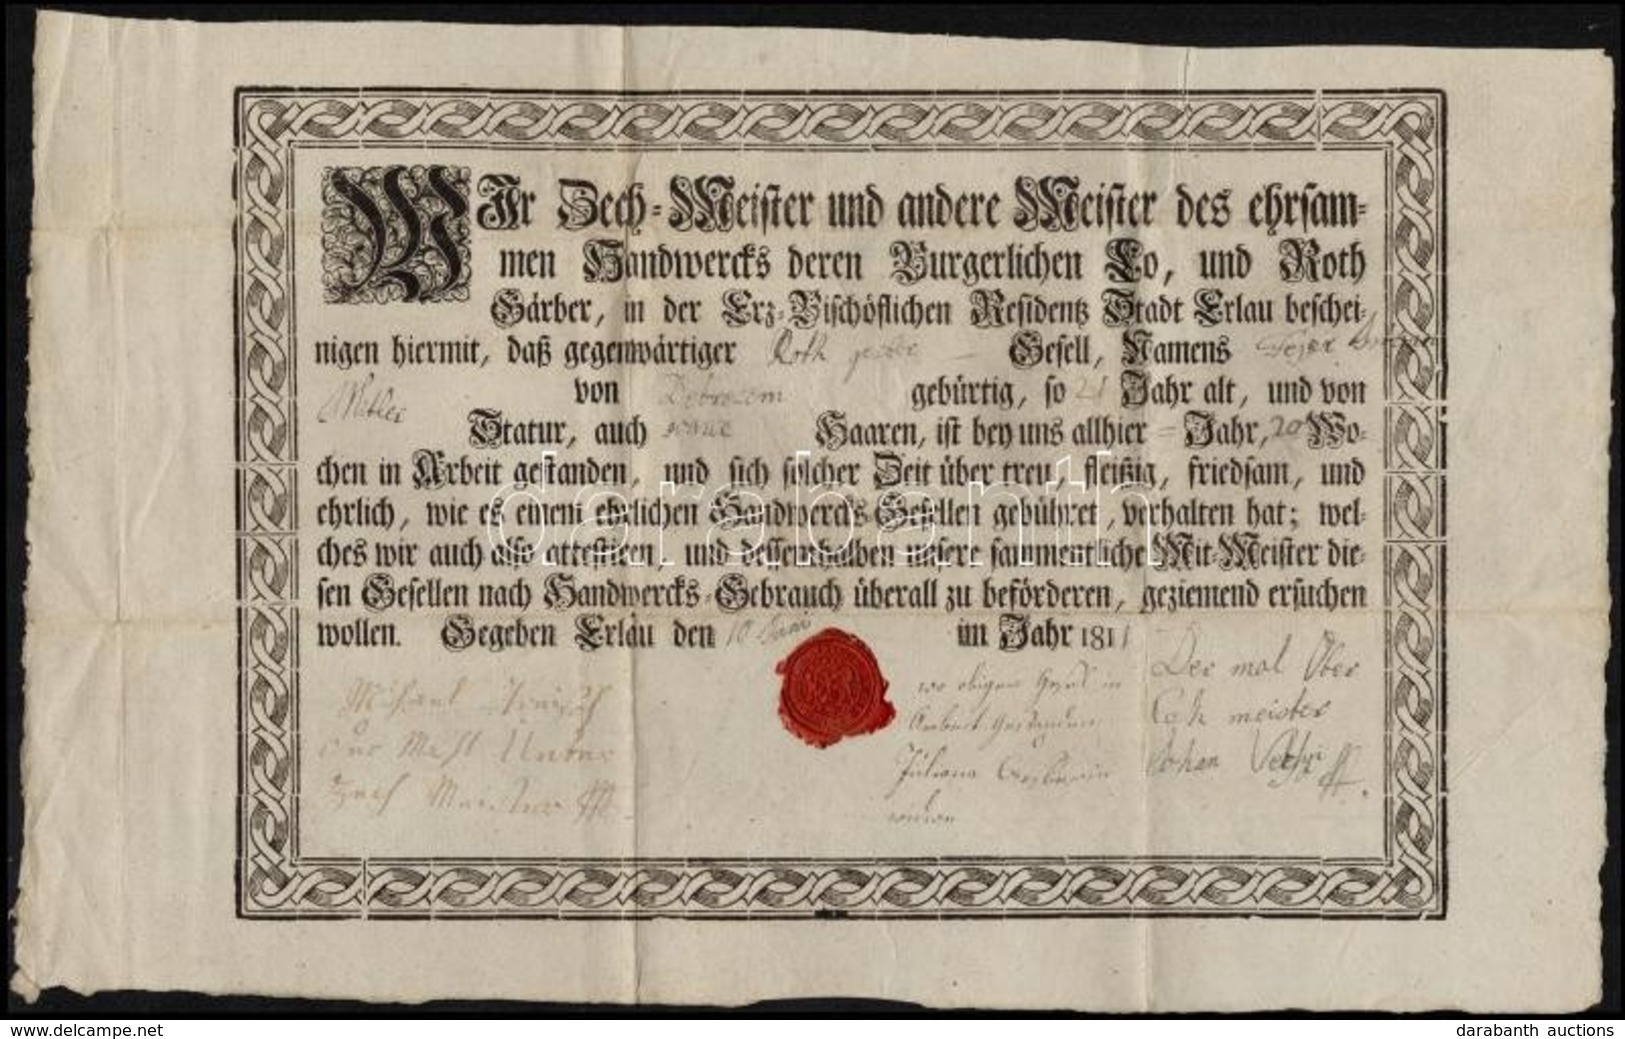 WIr Zech-Meister und andere Meister des ehrsam-
men Handwercks deren Burgerlichen Lo, und Roth
Gärber, in der Erz-Bischöflichen Residentz Stadt Erlau beschei-
nigen hiermit, daß gegenwärtiger Roth Gesell, Namens
von Debrezem gebürtig, so 21 Jahr alt, und von
Mitler
Statur, auch Haaren, ist bey uns allhier – Jahr, 20 Wo-
chen in Arbeit gestanden, und sich solcher Zeit über treu, fleißig, friedsam, und
ehrlich, wie es einem ehrlichen Handwercks-Gesellen gebühret, verhalten hat; wel-
ches wir auch also attestiren, und dessenthalben unsere sammentliche Mit-Meister die-
sen Gesellen nach Handwercks-Gebrauch überall zu beförderen, geziemend ersuchen
wollen. Gegeben Erlau den 10 Juni im Jahr 1811
Der mal Ober
wo obigen Gesel in
Michael
Cech meister
Arbeit gestanden
Johan
Juliana
Zech Meister
darabanth
www.delcampe.net
darabanth auctions